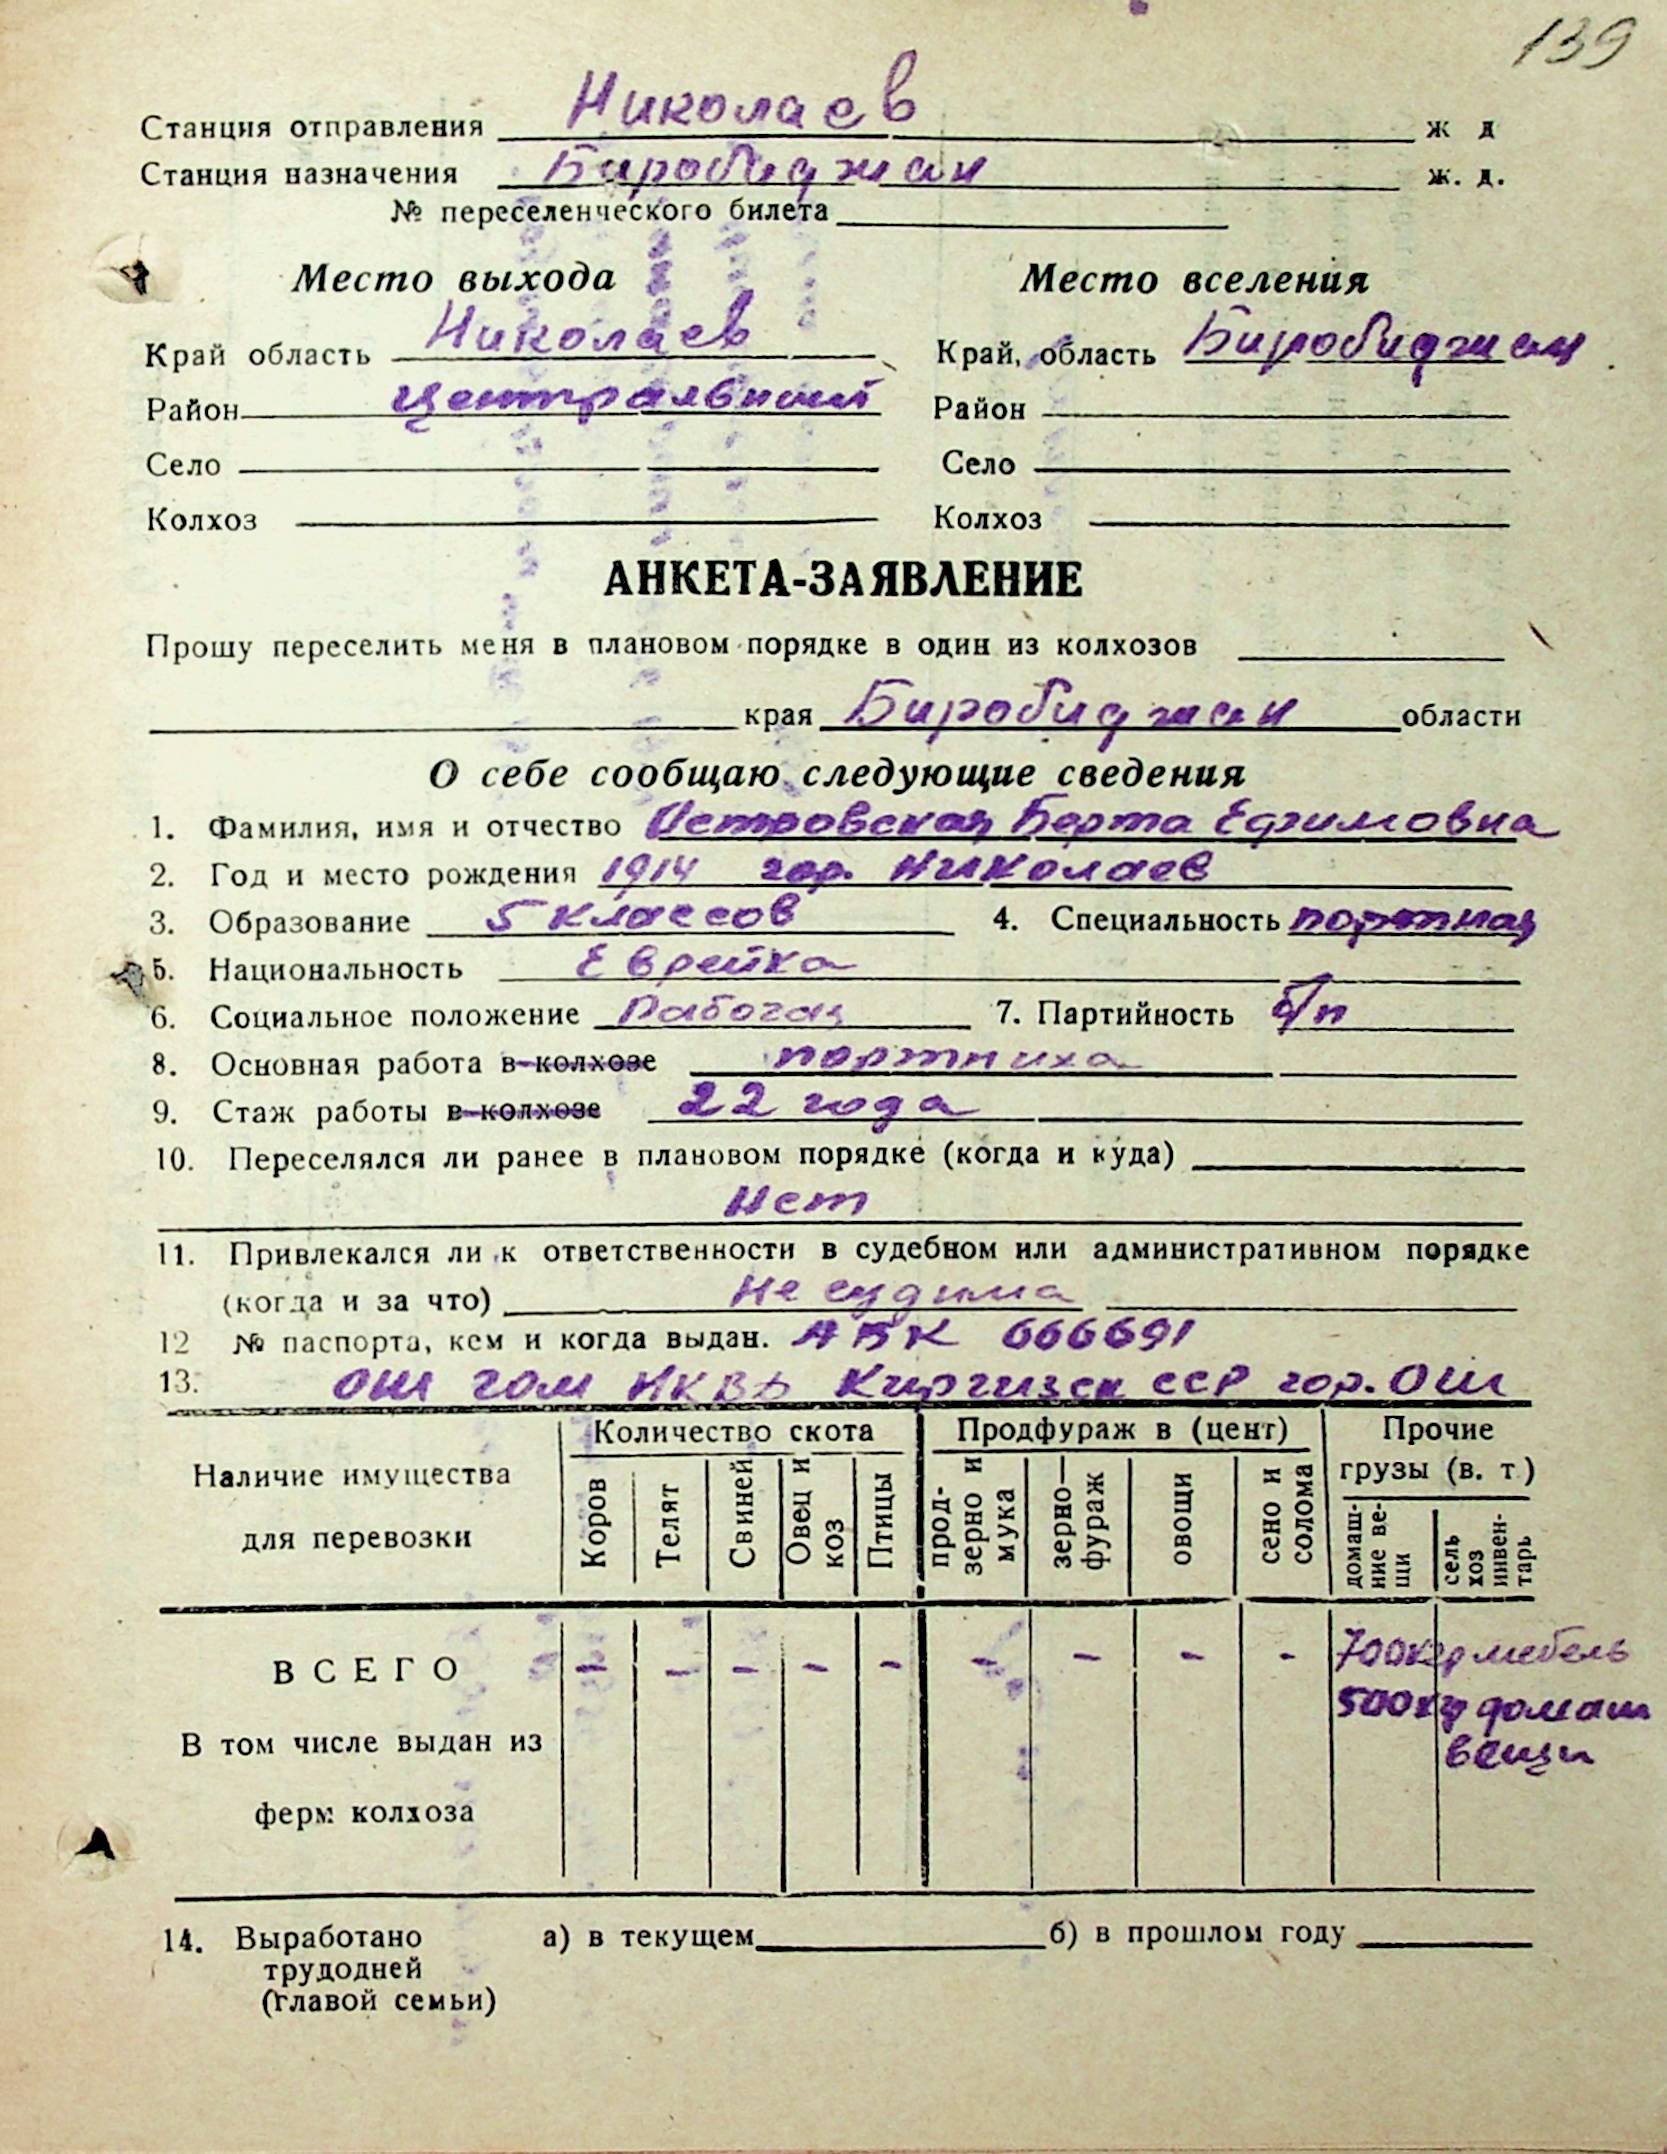 139
Станция отправления Николаев ж д
Станция назначения Биробиджан ж. д.
№ переселенческого билета
Место выхода Место вселения
Край область Николаев Край, область Биробиджан
Район Центральный Район
Село Село
Колхоз Колхоз
АНКЕТА-ЗАЯВЛЕНИЕ
Прошу переселить меня в плановом порядке в один из колхозов
края Биробиджан области
О себе сообщаю следующие сведения
1. Фамилия, имя и отчество Островская Берта Ефимовна
2. Год и место рождения 1914 гор. Николаев
3. Образование 5 классов 4. Специальность портная
5. Национальность Еврейка
6. Социальное положение Рабочая 7. Партийность б/п
8. Основная работа в колхозе портниха
9. Стаж работы в колхозе 22 года
10. Переселялся ли ранее в плановом порядке (когда и куда)
Нет
11. Привлекался ли к ответственности в судебном или административном порядке
(когда и за что) Не судима
12 № паспорта, кем и когда выдан. АВК 666691
13. Ош гом НКВД Киргизск ССР гор. Ош
Наличие имущества для перевозки
Количество скота
Коров
Телят
Свиней
Овец и коз
Птицы
Продфураж в (цент)
прод-
зерно и
мука
зерно—
фураж
овощи
сено и
солома
Прочие
грузы (в. т.)
домаш-
ние ве-
щи
сель
хоз
инвен-
тарь
ВСЕГО - - - - - - - - - 700кг мебель
500кг домаш
вещи
В том числе выдан из
ферм колхоза
14. Выработано а) в текущем б) в прошлом году
трудодней
(главой семьи)